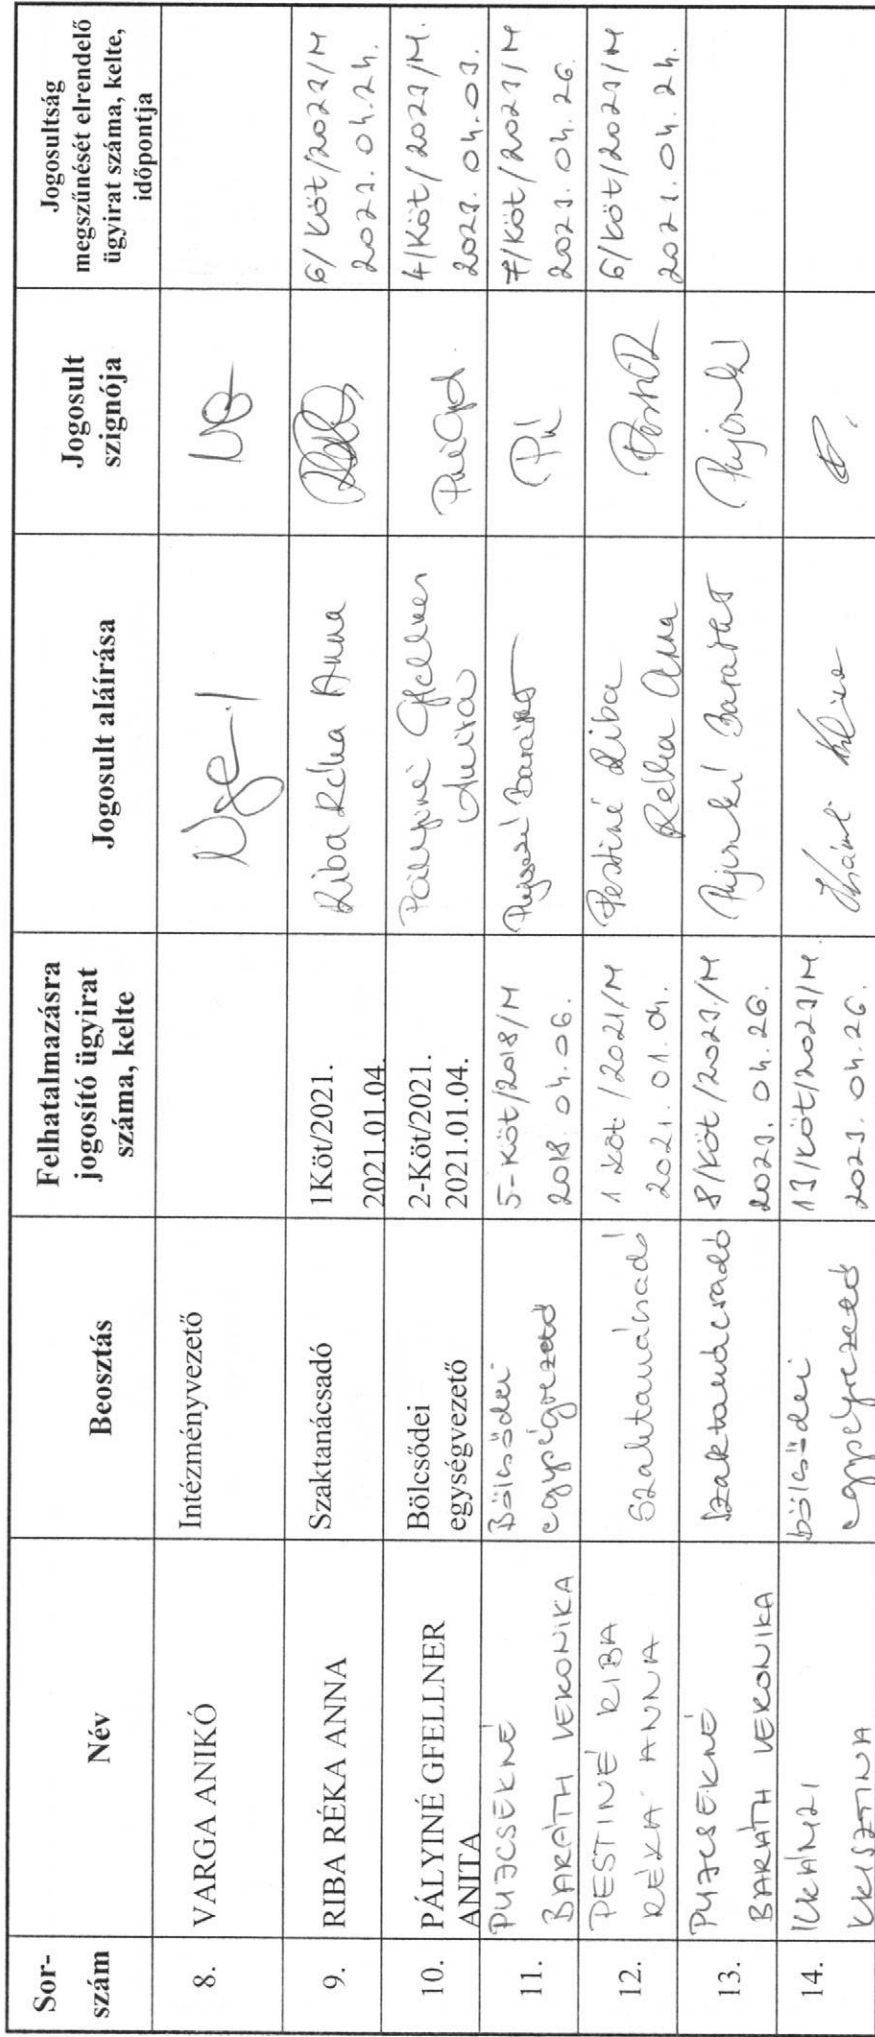 Sor-
szám
Név
Beosztás
Felhatalmazásra
jogosító ügyirat
száma, kelte
Jogosult aláírása
Jogosult
szignója
Jogosultság
megszűnését elrendelő
ügyirat száma, kelte,
időpontja
8.
VARGA ANIKÓ
Intézményvezető
9.
RIBA RÉKA ANNA
Szaktanácsadó
1Köt/2021.
2021.01.04.
Riba Réka Anna
6/Köt/2023/M
2023. 04. 24.
10.
PÁLYINÉ GFELLNER
ANITA
Bölcsődei
egységvezető
2-Köt/2021.
2021.01.04.
Pályiné Gfellner
Anita
4/Köt/2023/M.
2023. 04. 03.
11.
BARÁTH VERONIKA
Bölcsődei
egységvezető
5-Köt/2018/M
2018. 04. 06.
7/Köt/2023/M
2023. 04. 26.
12.
PESTINÉ RIBA
RÉKA ANNA
Szaktanácsadó
1 Köt/2021/M
2021. 01. 04.
Pestiné Riba
Réka Anna
6/Köt/2023/M
2023. 04. 24.
13.
BARÁTH VERONIKA
Szaktanácsadó
8/Köt/2023/M
2023. 04. 26.
14.
KRISZTINA
bölcsődei
egységvezető
13/Köt/2023/M.
2023. 04. 26.